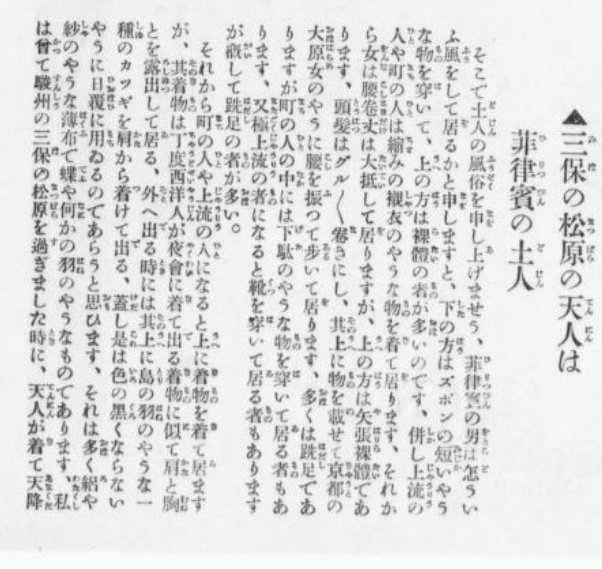 ▲三保の松原の天人は
菲律賓の土人
そこで土人の風俗を申し上げませう、菲律賓の男は怎うい
ふ風をして居るかと申しますと、下の方はズボンの短いやう
な物を穿いて、上の方は裸體の者が多いのです、併し上流の
人や町の人は縮みの襯衣のやうな物を着て居ります、それか
ら女は腰卷丈は大抵して居りますが、上の方は矢張裸體であ
ります、頭髮はグル〱卷きにし、其上に物を載せて京都の
大原女のやうに腰を振つて歩いて居ります、多くは跣足であ
りますが町の人の中には下駄のやうな物を穿いて居る者もあ
ります、又極上流の者になると靴を穿いて居る者もあります
が概して跣足の者が多い。
それから町の人や上流の人になると上に着物を着て居ます
が、其着物は丁度西洋人が夜會に着て出る着物に似て肩と胸
とを露出して居る、外へ出る時には其上に島の羽のやうな一
種のカツギを肩から着けて出る、蓋し是は色の黑くならない
やうに日覆に用ゐるのであらうと思ひます、それは多く絽や
紗のやうな薄布で蝶や何かの羽のやうなものであります、私
は曾て駿州の三保の松原を過ぎました時に、天人が着て天降